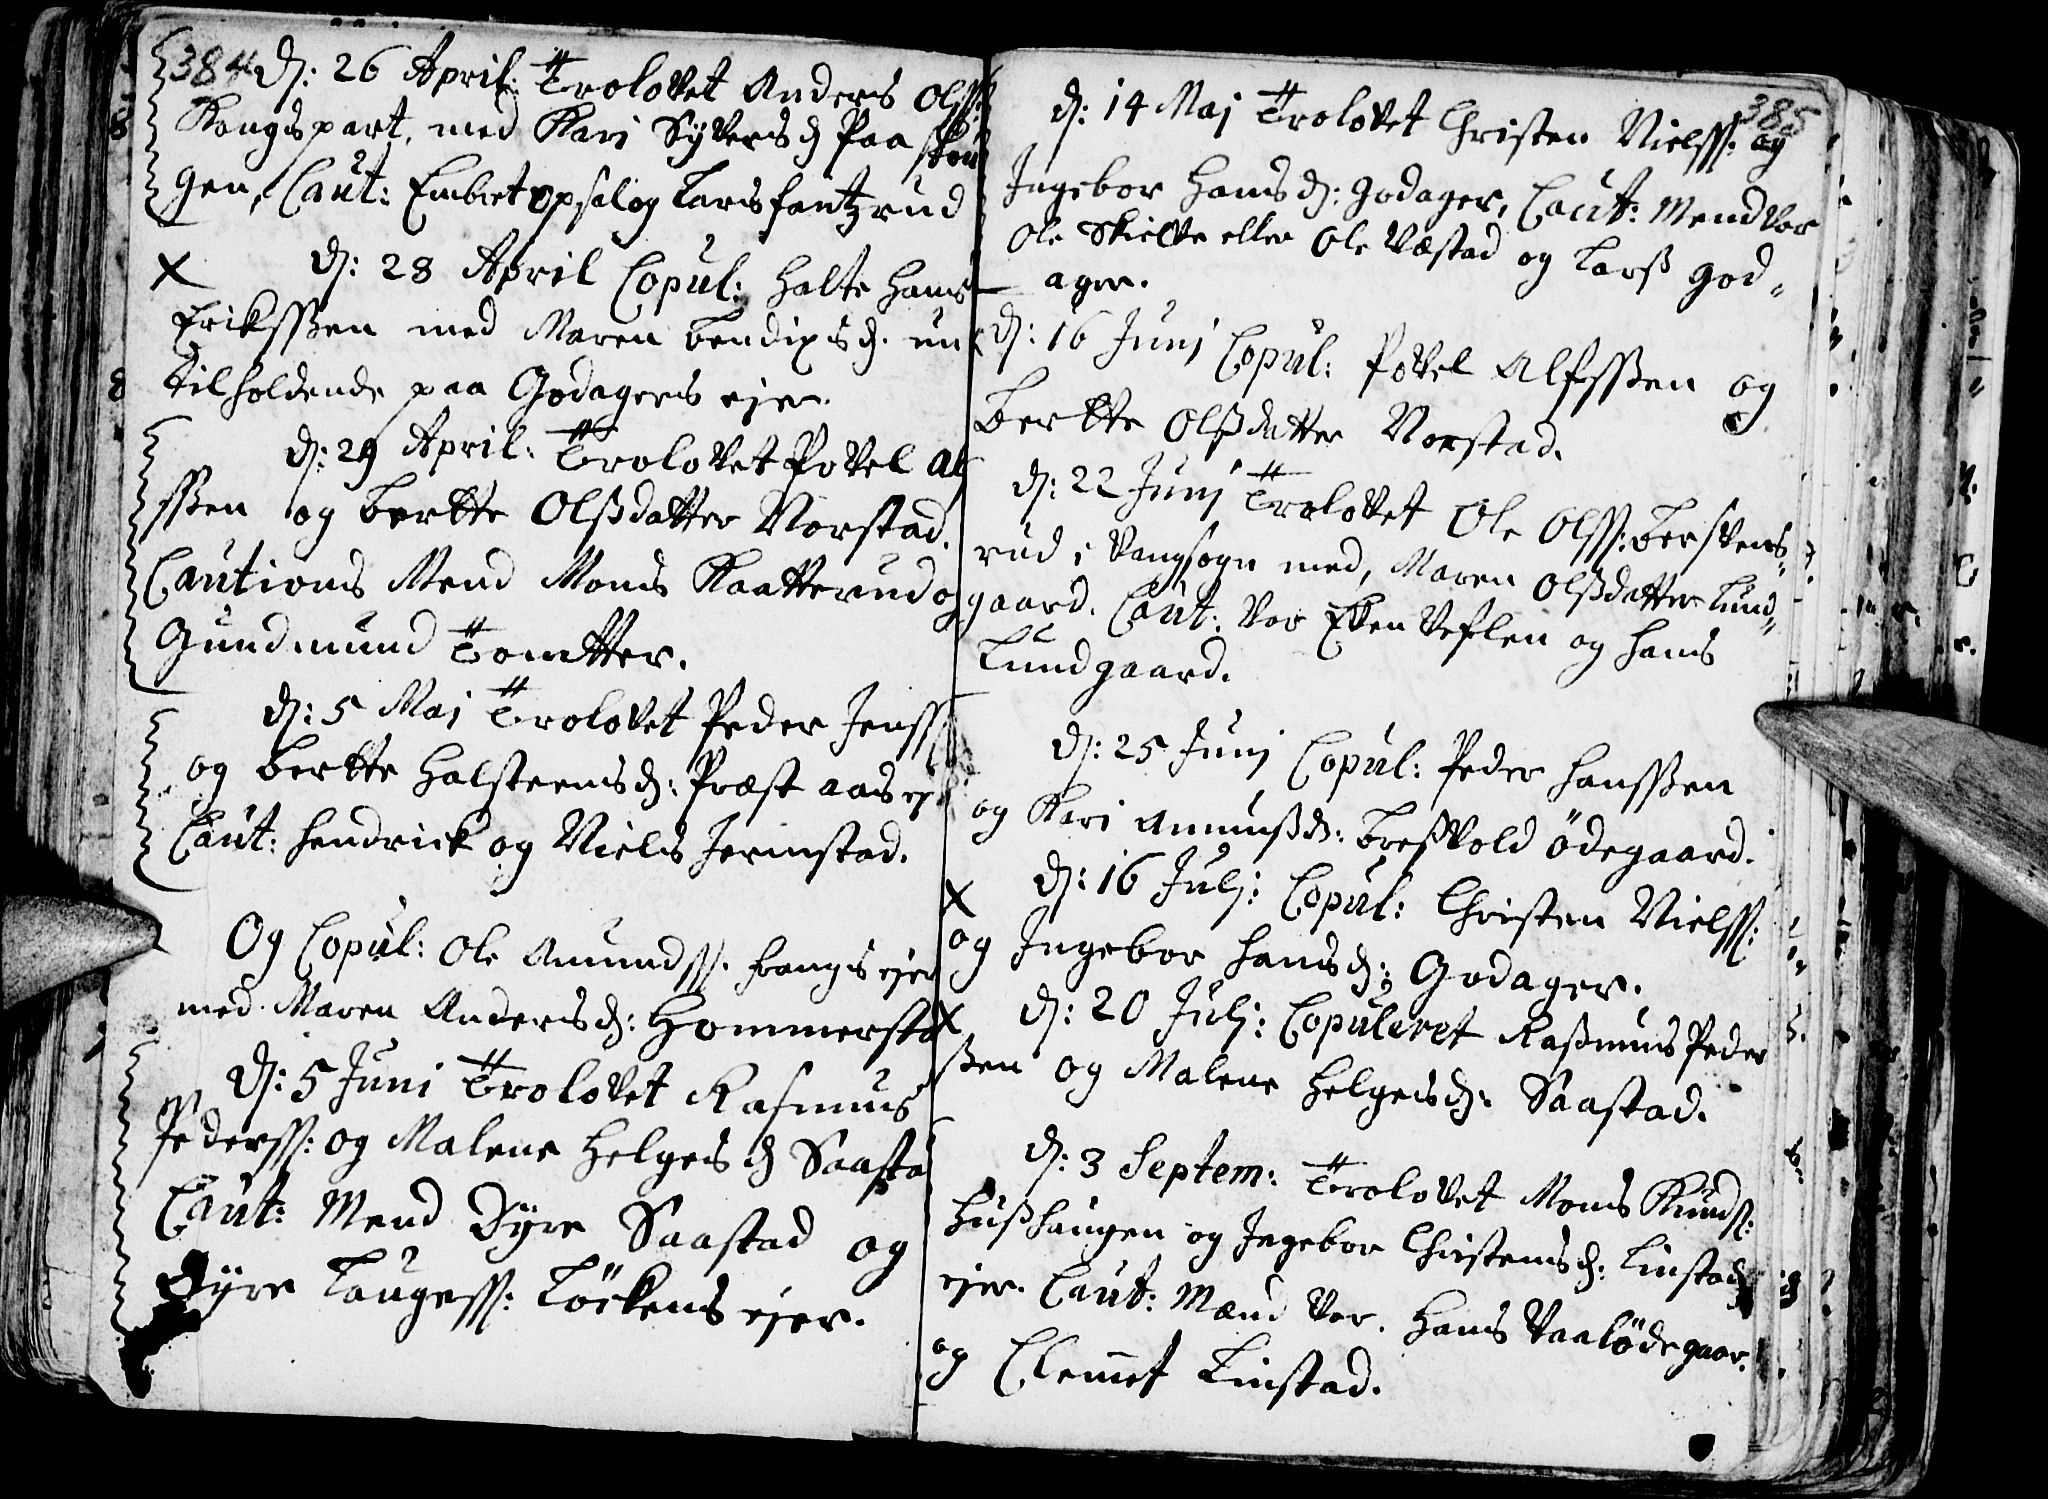 384
D: 26 April: Trolovet Anders Olss:
Kongspart, med Kari Syversd Paa skou
gen, Caut: Embret Opsal og Lars fantzrud
D: 28 April Copul: Halte Hans
Erikssen med Maren Bendixsd. un
tilholdende paa Godagers ejer.
D: 29 April: Trolovet Povel Alf
ssen og Berte Olsdatter Norstad.
Cautions Mend Mons Kaatterud og
Gundmund Tomtter.
D: 5 Maj Trolovet Peder Jenss:
og Berte Halsteensd: Præst aas ej
Caut: Hendrick og Niels Jerinstad.
Og Copul: Ole Amundss. Frangs ejer
med Maren Andersd: Hommersta
D: 5 Juni Trolovet Rasmus
Pederss: og Malene Helgesd Saasta
Caut: Mend Dyre Saastad og
Dyre Laugess: Löckens ejer.
385
D: 14 Maj Trolovet Christen Nielss: og
Ingebor Hansd: Godager, Caut: Mend vor
Ole Skielve eller Ole Væstad og Lars God-
ager.
D: 16 Junj Copul: Povel Alfssen og
Berte Olsdatter Norstad.
D: 22 Junj Trolovet Ole Olss: Berskens-
rud i Vangsogn med, Maren Olsdatter Lund-
gaard. Caut: vor Even Veflen og Hans
Lundgaard.
D: 25 Junj Copul: Peder Hanssen
og Kari Amunsd: Bresvold ödegaard.
D: 16 Julj: Copul: Christen Nielss:
og Ingebor Hansd: Godager.
D: 20 Julj: Copuleret Rasmus Peder
ssen og Malene Helgesd: Saastad.
D: 3 Septem: Trolovet Mons Knuds:
Hushaugen og Ingebor Christensd: Linstad
ejer. Caut: Mænd vor. Hans Vaalödegaar.
og Clemet Linstad.